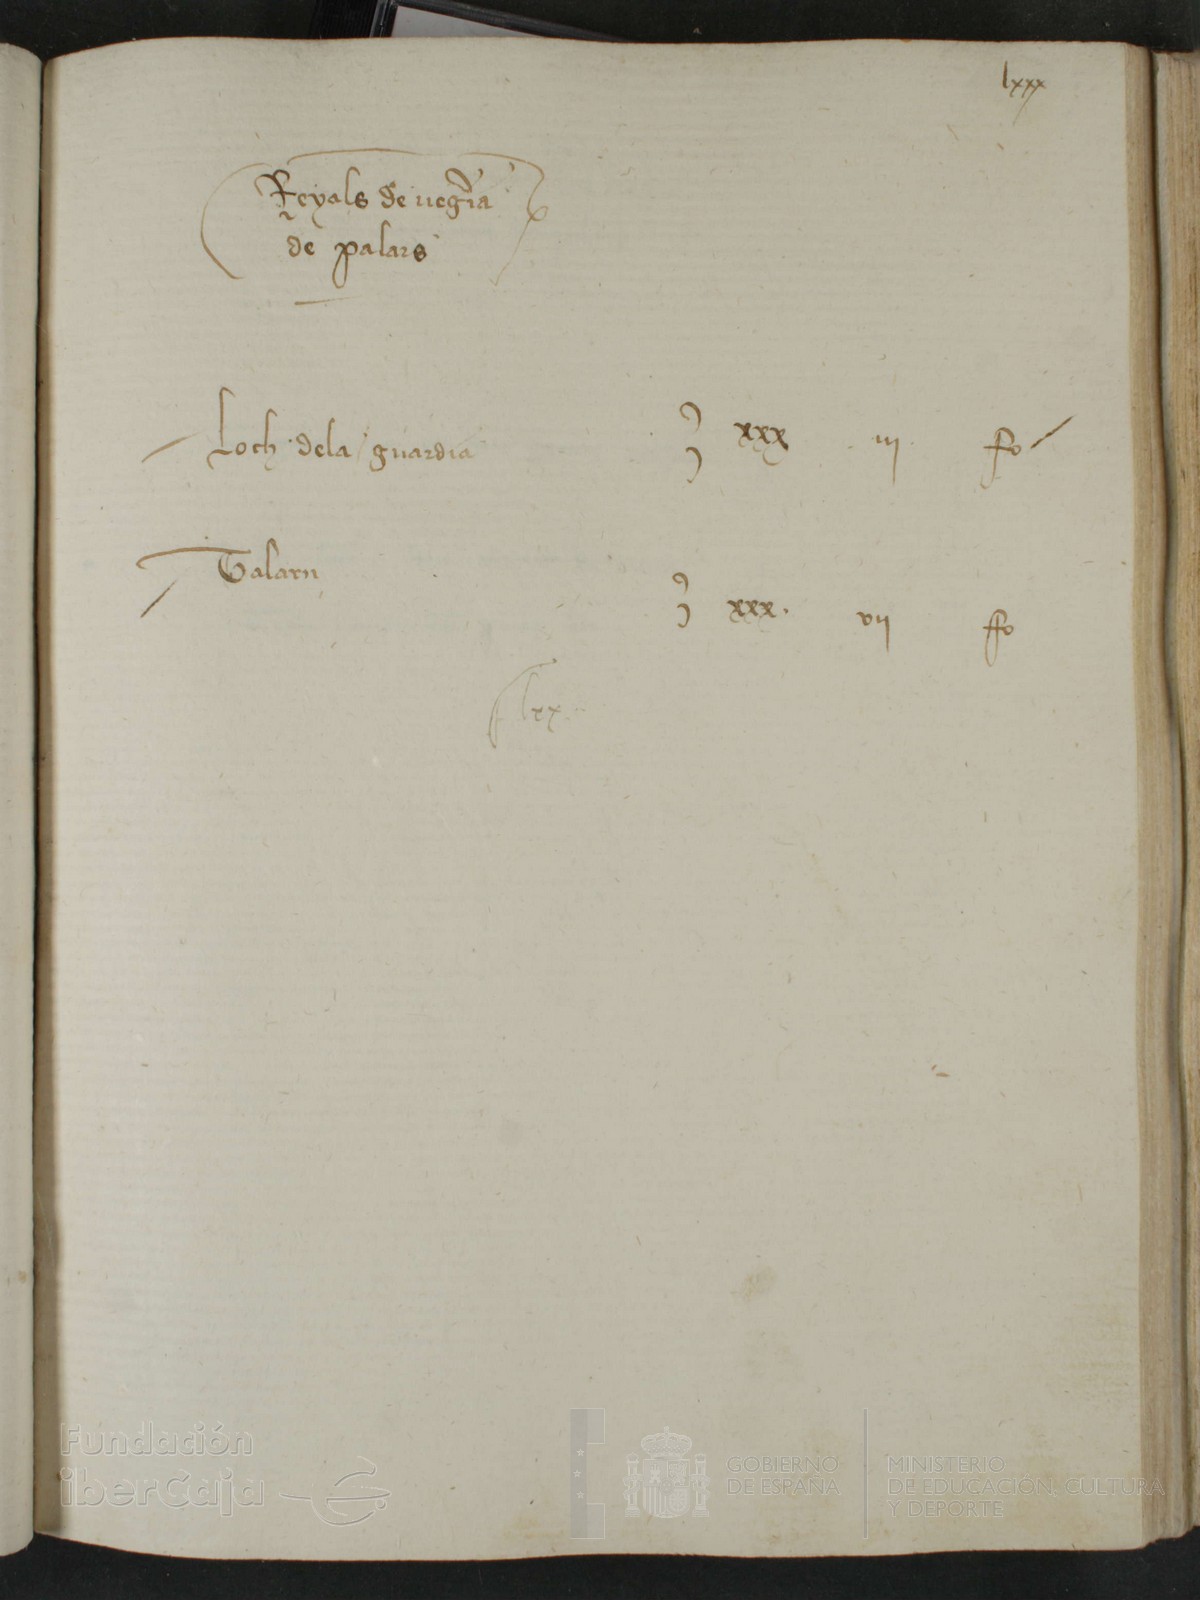 lxxx
Reyals de uegria
de palars
Loch dela guardia xxx iij fo
Talarn xxx. vij ffo
lxx
Fundación
iberCaja
GOBIERNO
DE ESPAÑA
MINISTERIO
DE EDUCACIÓN, CULTURA
Y DEPORTE